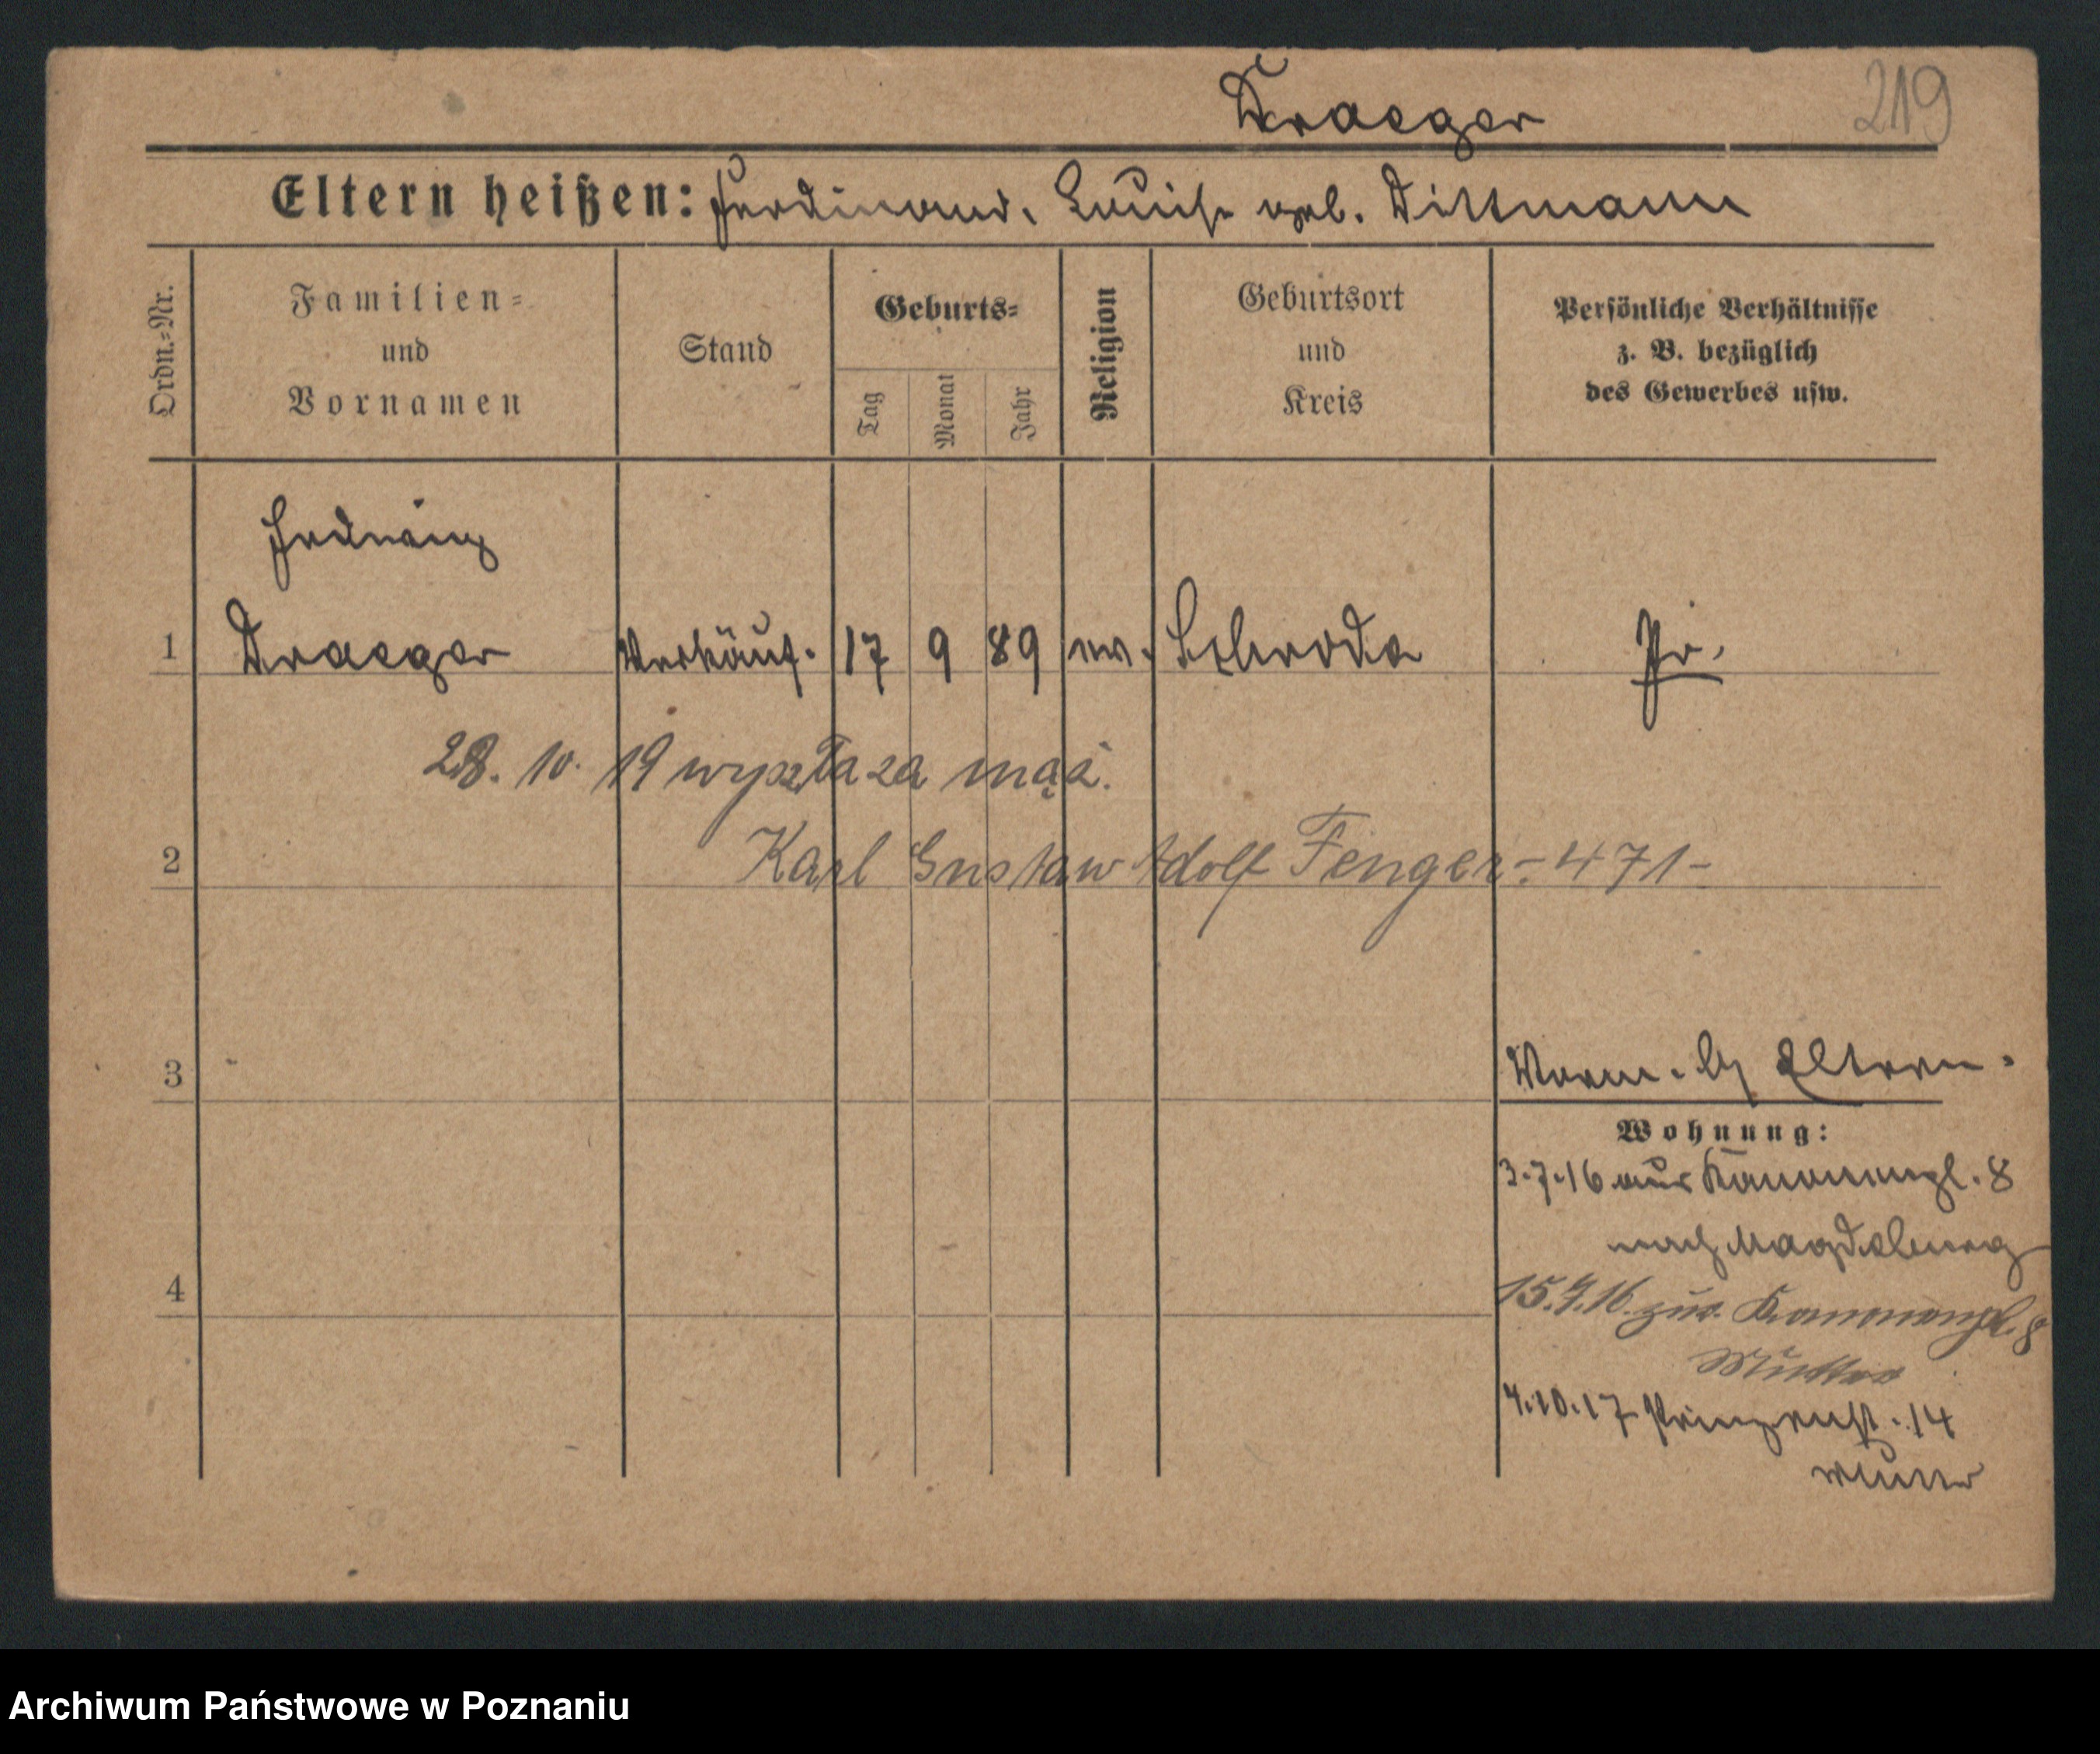 Draeger
219
Eltern heißen: Ferdinand, Louise geb. Dittmann
Ordn.=Nr.
Familien=
und
Vornamen
Stand
Geburts=
Tag
Monat
Jahr
Religion
Geburtsort
und
Kreis
Persönliche Verhältnisse
z. B. bezüglich
des Gewerbes usw.
1
Draeger
Verkäuf.
17 9 89
ev.
Schroda
Pr.
28. 10. 19 wyszła za mąż.
2
Karl Gustaw Adolf Fenger - 471 -
3
Eltern.
Wohnung:
3.7.16 aus Kanonenpl. 8
nach Magdeburg
4
zur. Kanonenpl. 8
Mutter
4.10.17 Prinzenst. 14
Mutter
Archiwum Państwowe w Poznaniu